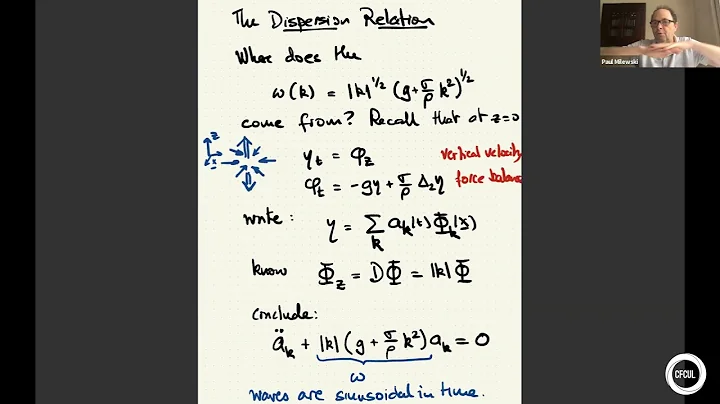 The Dispersion Relation
Where does the
ω(k) = |k|^{1/2} (g+σ/ρ k²)^{1/2}
come from? Recall that at z=0
z
x
η_t = φ_z
vertical velocity
φ_t = -gη + σ/ρ Δ₂η
force balance
write:
η = Σ_k a_k(t) Φ_k(x)
know
Φ_z = DΦ = |k| Φ
conclude:
ä_k + |k| (g + σ/ρ k²) a_k = 0
ω
waves are sinusoidal in time.
Paul Milewski
CFCUL